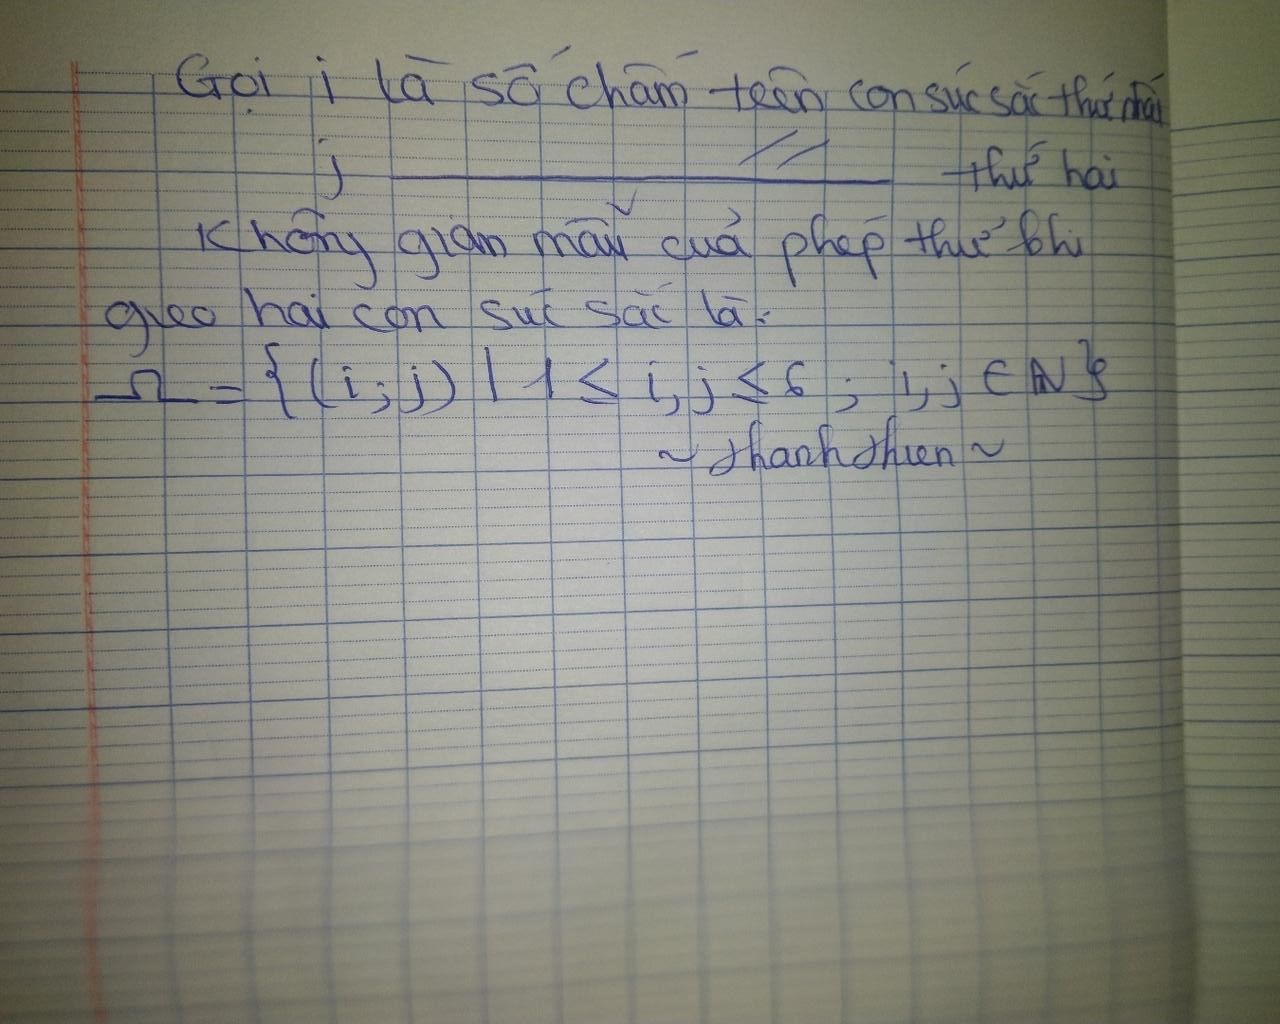 Gọi i là số chấm trên con súc sắc thứ nhất
j ———— // ———— thứ hai
Không gian mẫu của phép thử khi
gieo hai con súc sắc là:
Ω = {(i;j) | 1 ≤ i,j ≤ 6 ; i,j ∈ N}
~ thanh thien ~